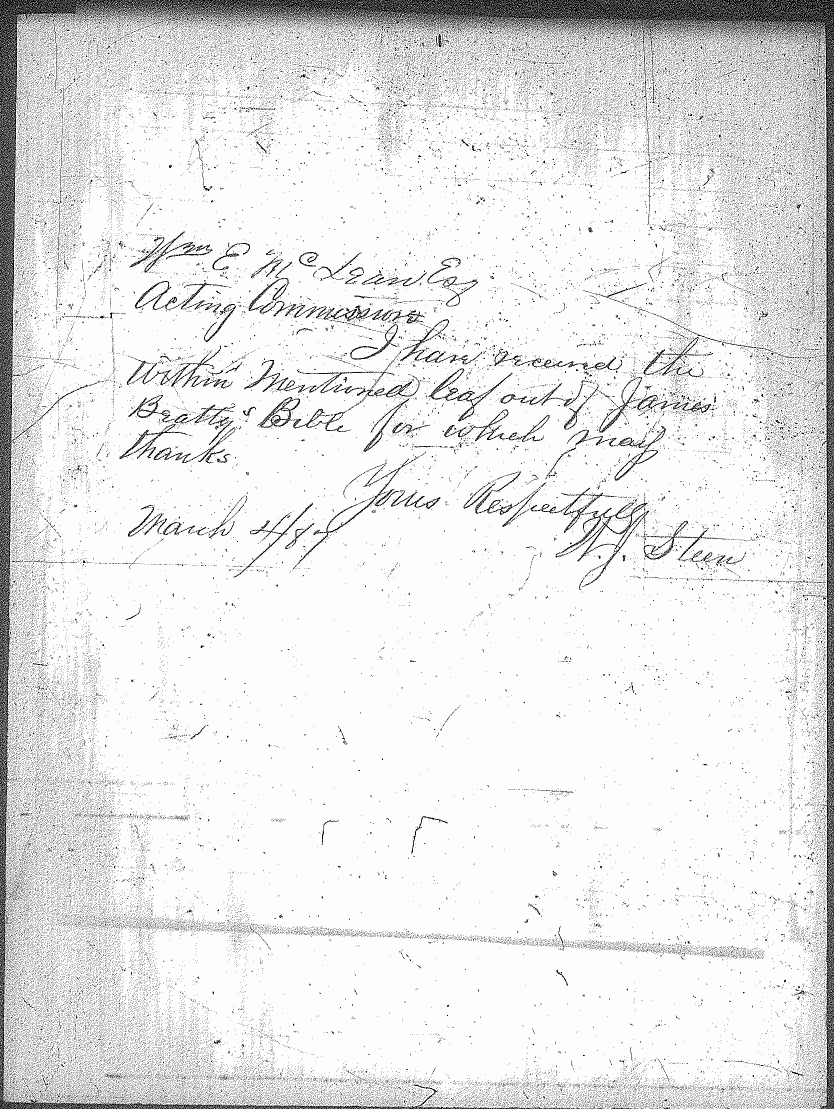 Wm E. McLean Esq
Acting Commissions
I have received the
within mentioned leaf out of James
Beatty's Bible for which may
thanks.
Yours Respectfully
W. J. Steen
March 4/87